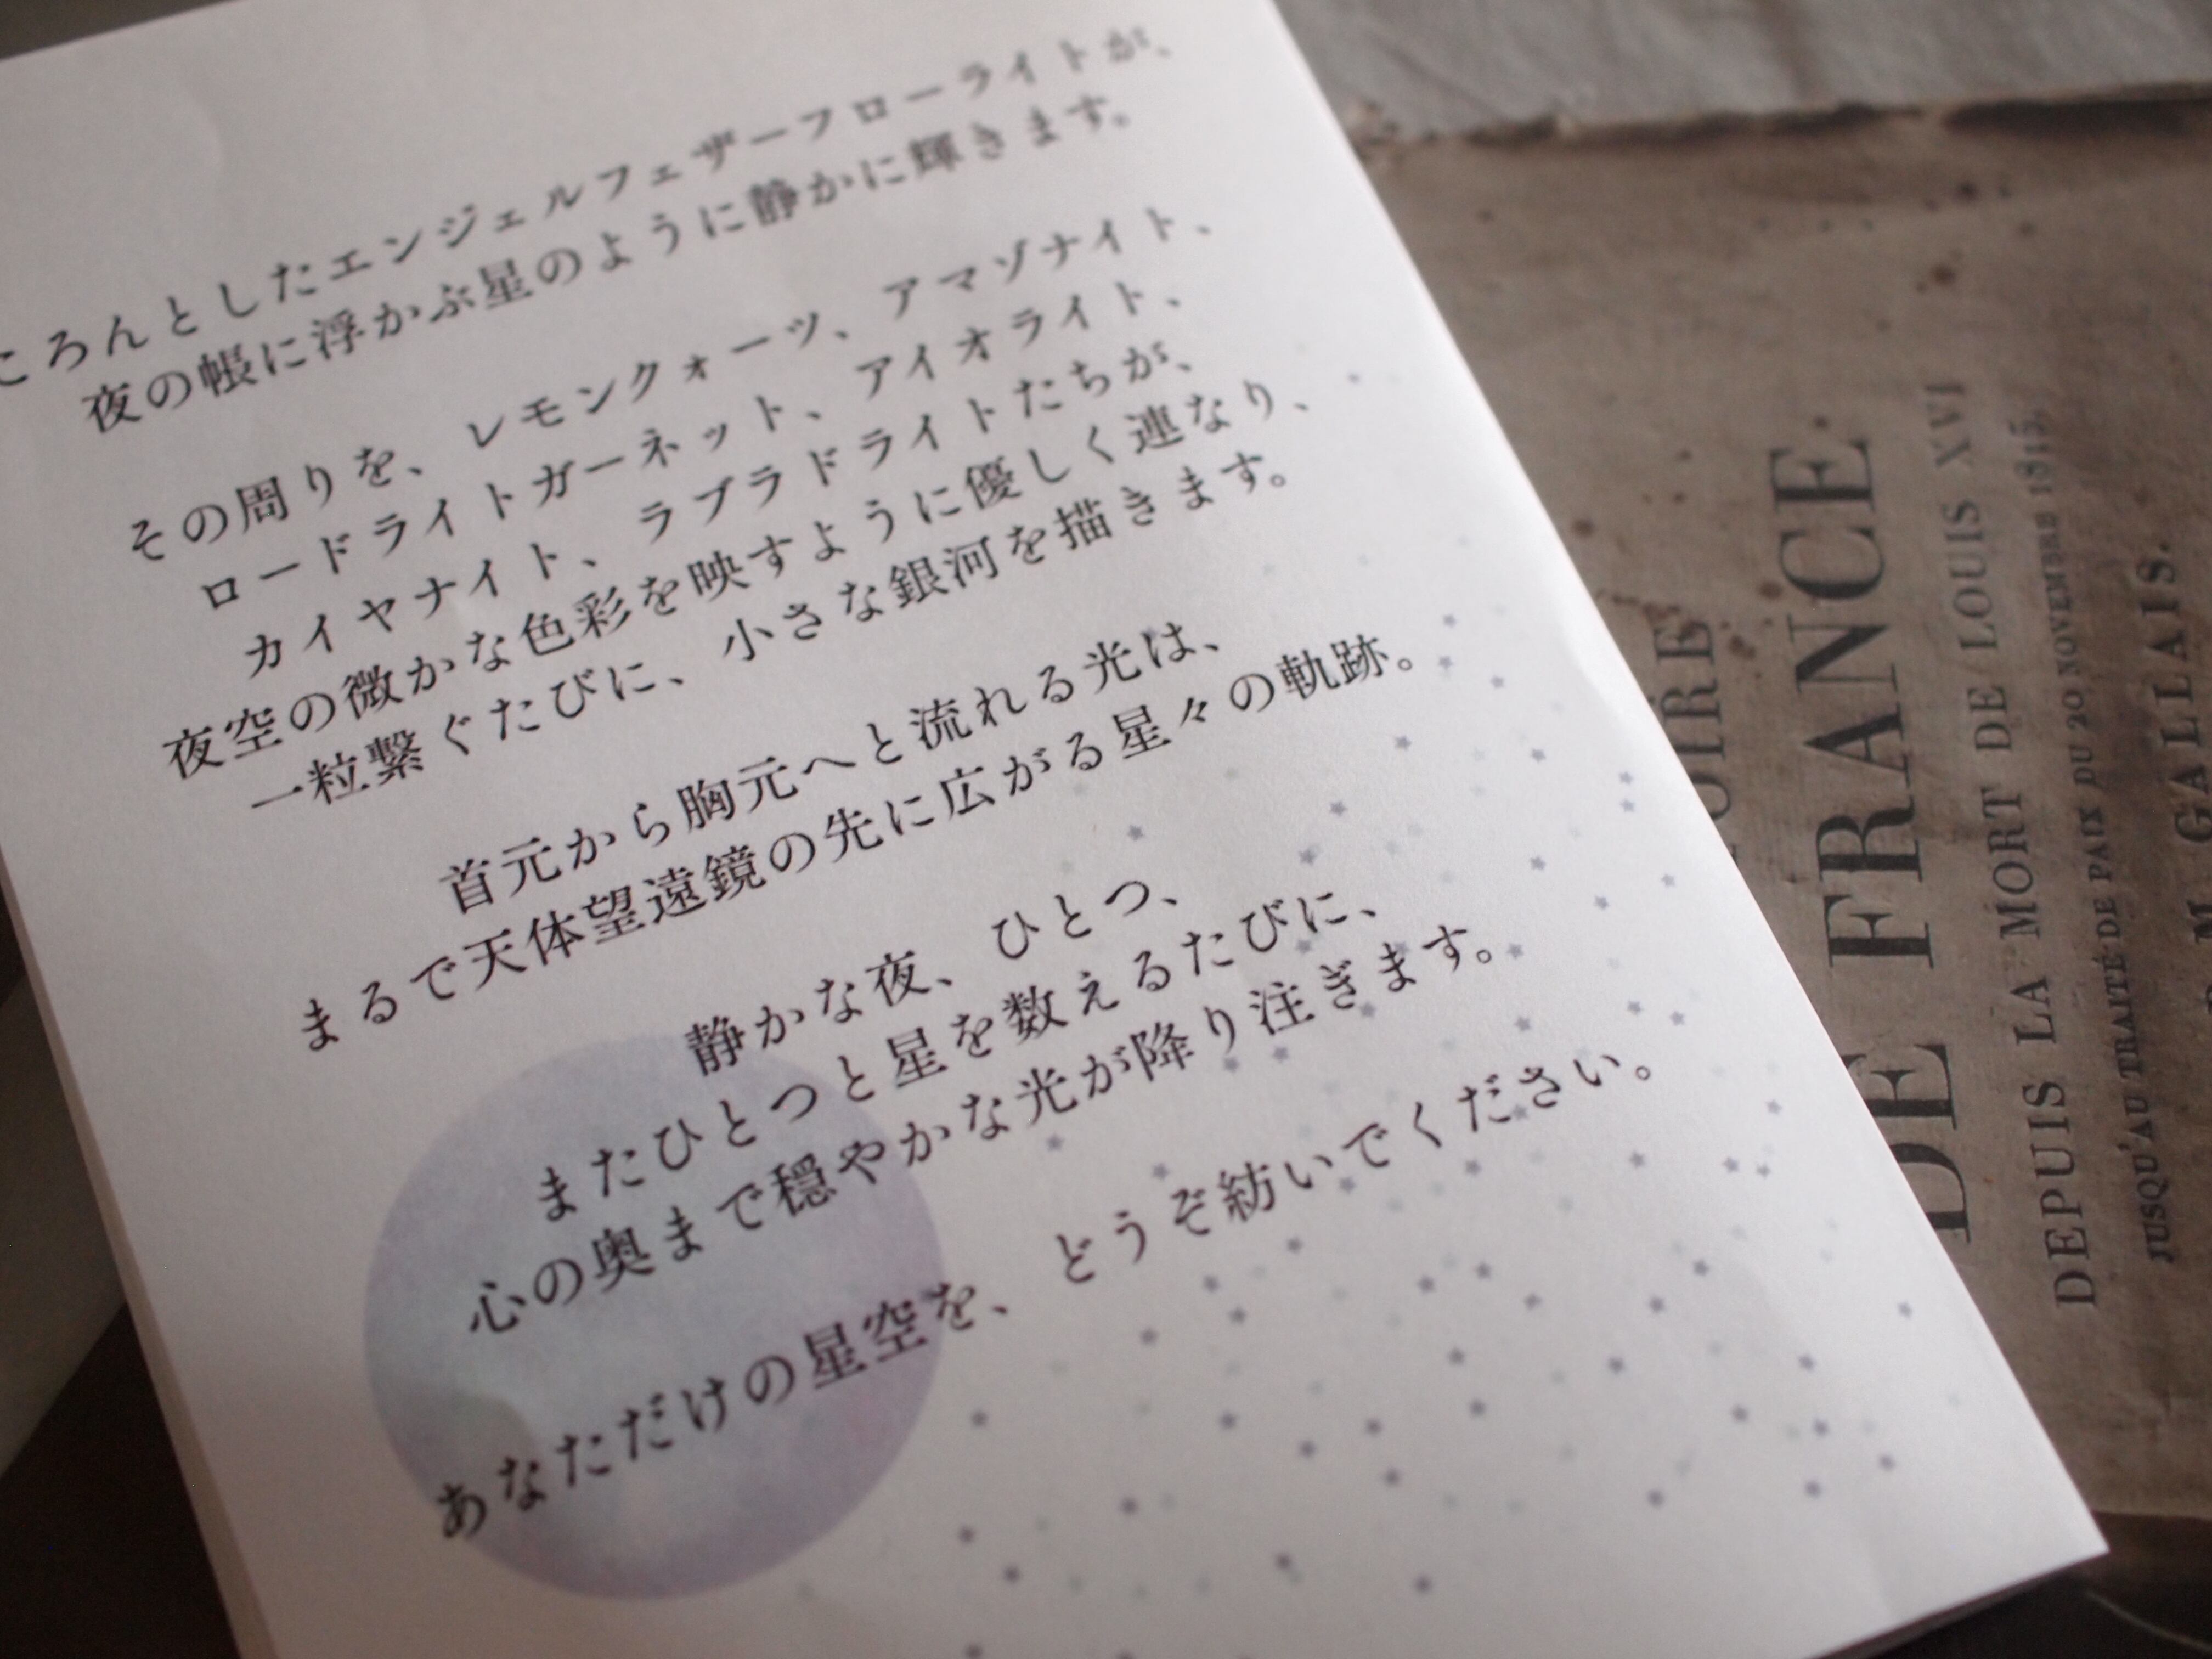 ころんとしたエンジェルフェザーフローライトが、
夜の帳に浮かぶ星のように静かに輝きます。
その周りを、レモンクォーツ、アマゾナイト、
ロードライトガーネット、アイオライト、
カイヤナイト、ラブラドライトたちが、
夜空の微かな色彩を映すように優しく連なり、
一粒繋ぐたびに、小さな銀河を描きます。
首元から胸元へと流れる光は、
まるで天体望遠鏡の先に広がる星々の軌跡。
静かな夜、ひとつ、
またひとつと星を数えるたびに、
心の奥まで穏やかな光が降り注ぎます。
あなただけの星空を、どうぞ紡いでください。
OIRE
DE FRANCE
DEPUIS LA MORT DE LOUIS XVI
JUSQU'AU TRAITÉ DE PAIX DU 20 NOVEMBRE 1815,
M. GALLAIS.